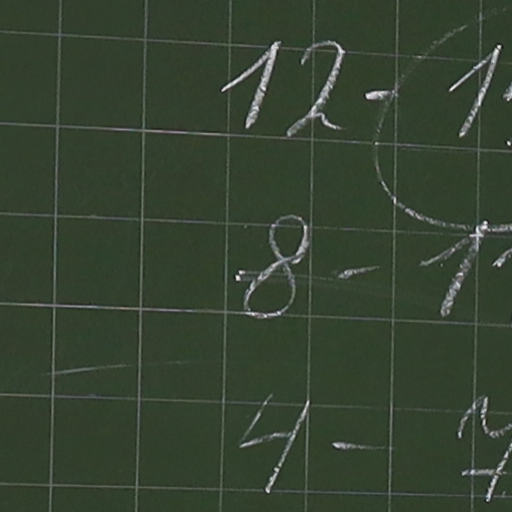 12 - 1
8 - 1
4 -